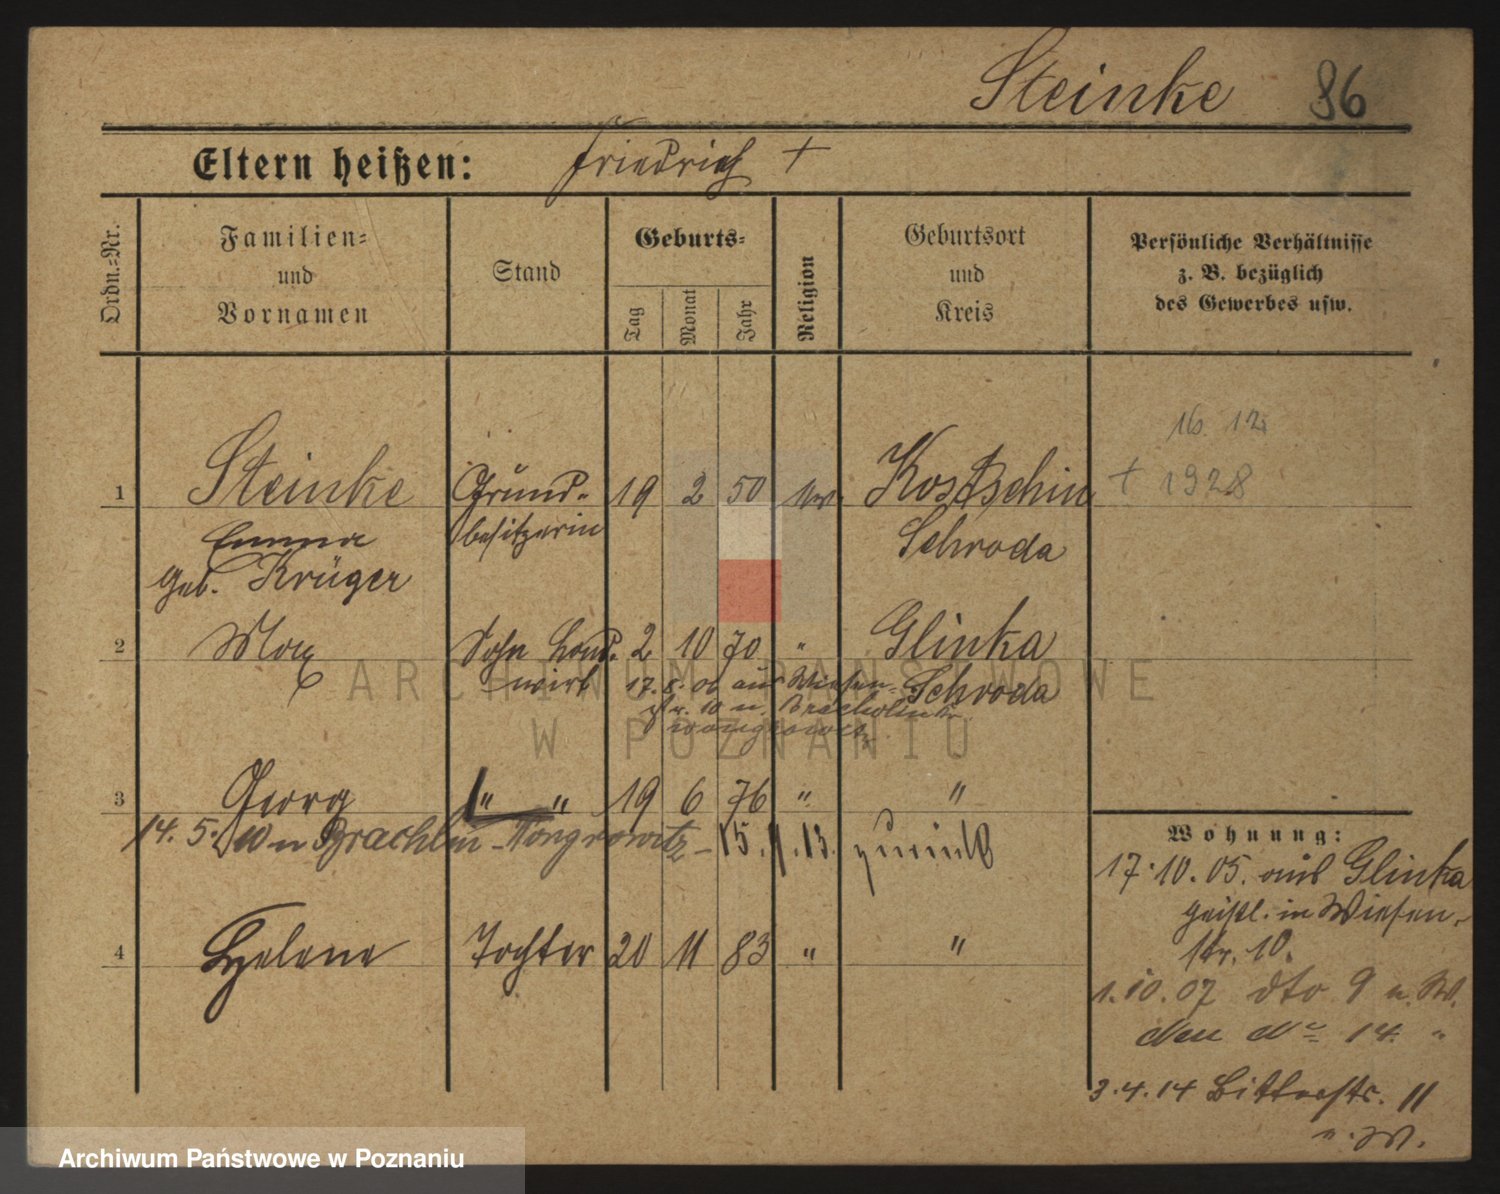 Steinke 86
Eltern heißen: Friedrich +
Ordn.-Nr.
Familien-
und
Vornamen
Stand
Geburts-
Tag
Monat
Jahr
Religion
Geburtsort
und
Kreis
Persönliche Verhältnisse
z. B. bezüglich
des Gewerbes usw.
16. 12.
+ 1928
1 Steinke Grund- 19 2 50 Kostschin
Emma besitzerin Schroda
geb. Krüger
2 Max Sohn Land- 2 10 70 " Glinka
wirt 17.8.06 aus Wiesen- Schroda
str. 10 n. Bracholin
Wongrowitz
3 Georg " " 19 6 76 " "
14. 5. 10 n Brachlin - Wongrowitz - 15.9.13. zurück
4 Helene Tochter 20 11 83 " "
Wohnung:
17.10.05. aus Glinka
in Wiesen-
str. 10.
1.10.07 dto 9 n. W.
14. "
3.4.14 Bitterstr. 11
n. W.
ARCHIWUM PAŃSTWOWE
W POZNANIU
Archiwum Państwowe w Poznaniu